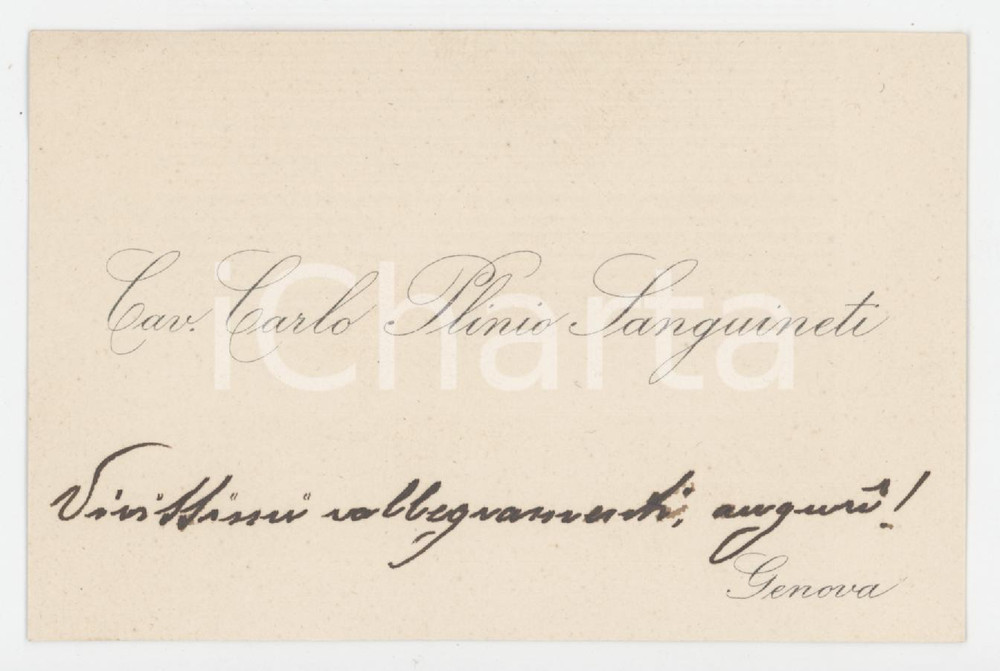 Cav. Carlo Plinio Sanguineti
iCharta
Vivissimi rallegramenti, auguri!
Genova